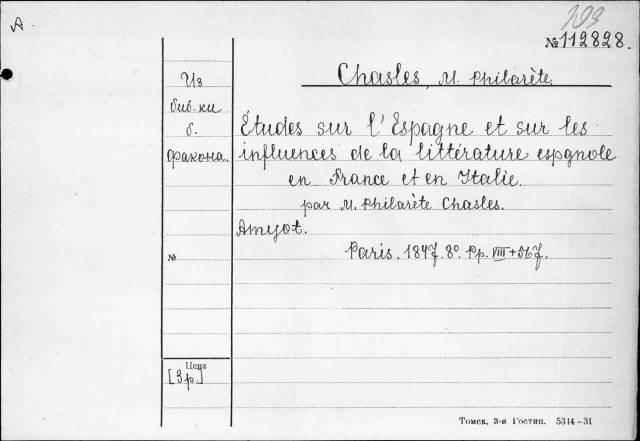 A
№112828.
Chasles, M. Philarète.
Из
биб-ки
б.
Факона.
Études sur l'Espagne et sur les
influences de la littérature espgnole
en France et en Italie.
par M. Philarète Chasles.
Amyot.
Paris. 1847. 8º. Pp. VIII+567.
№
Цена
[3р.]
Томск, 3-я Гостип. 5314-31